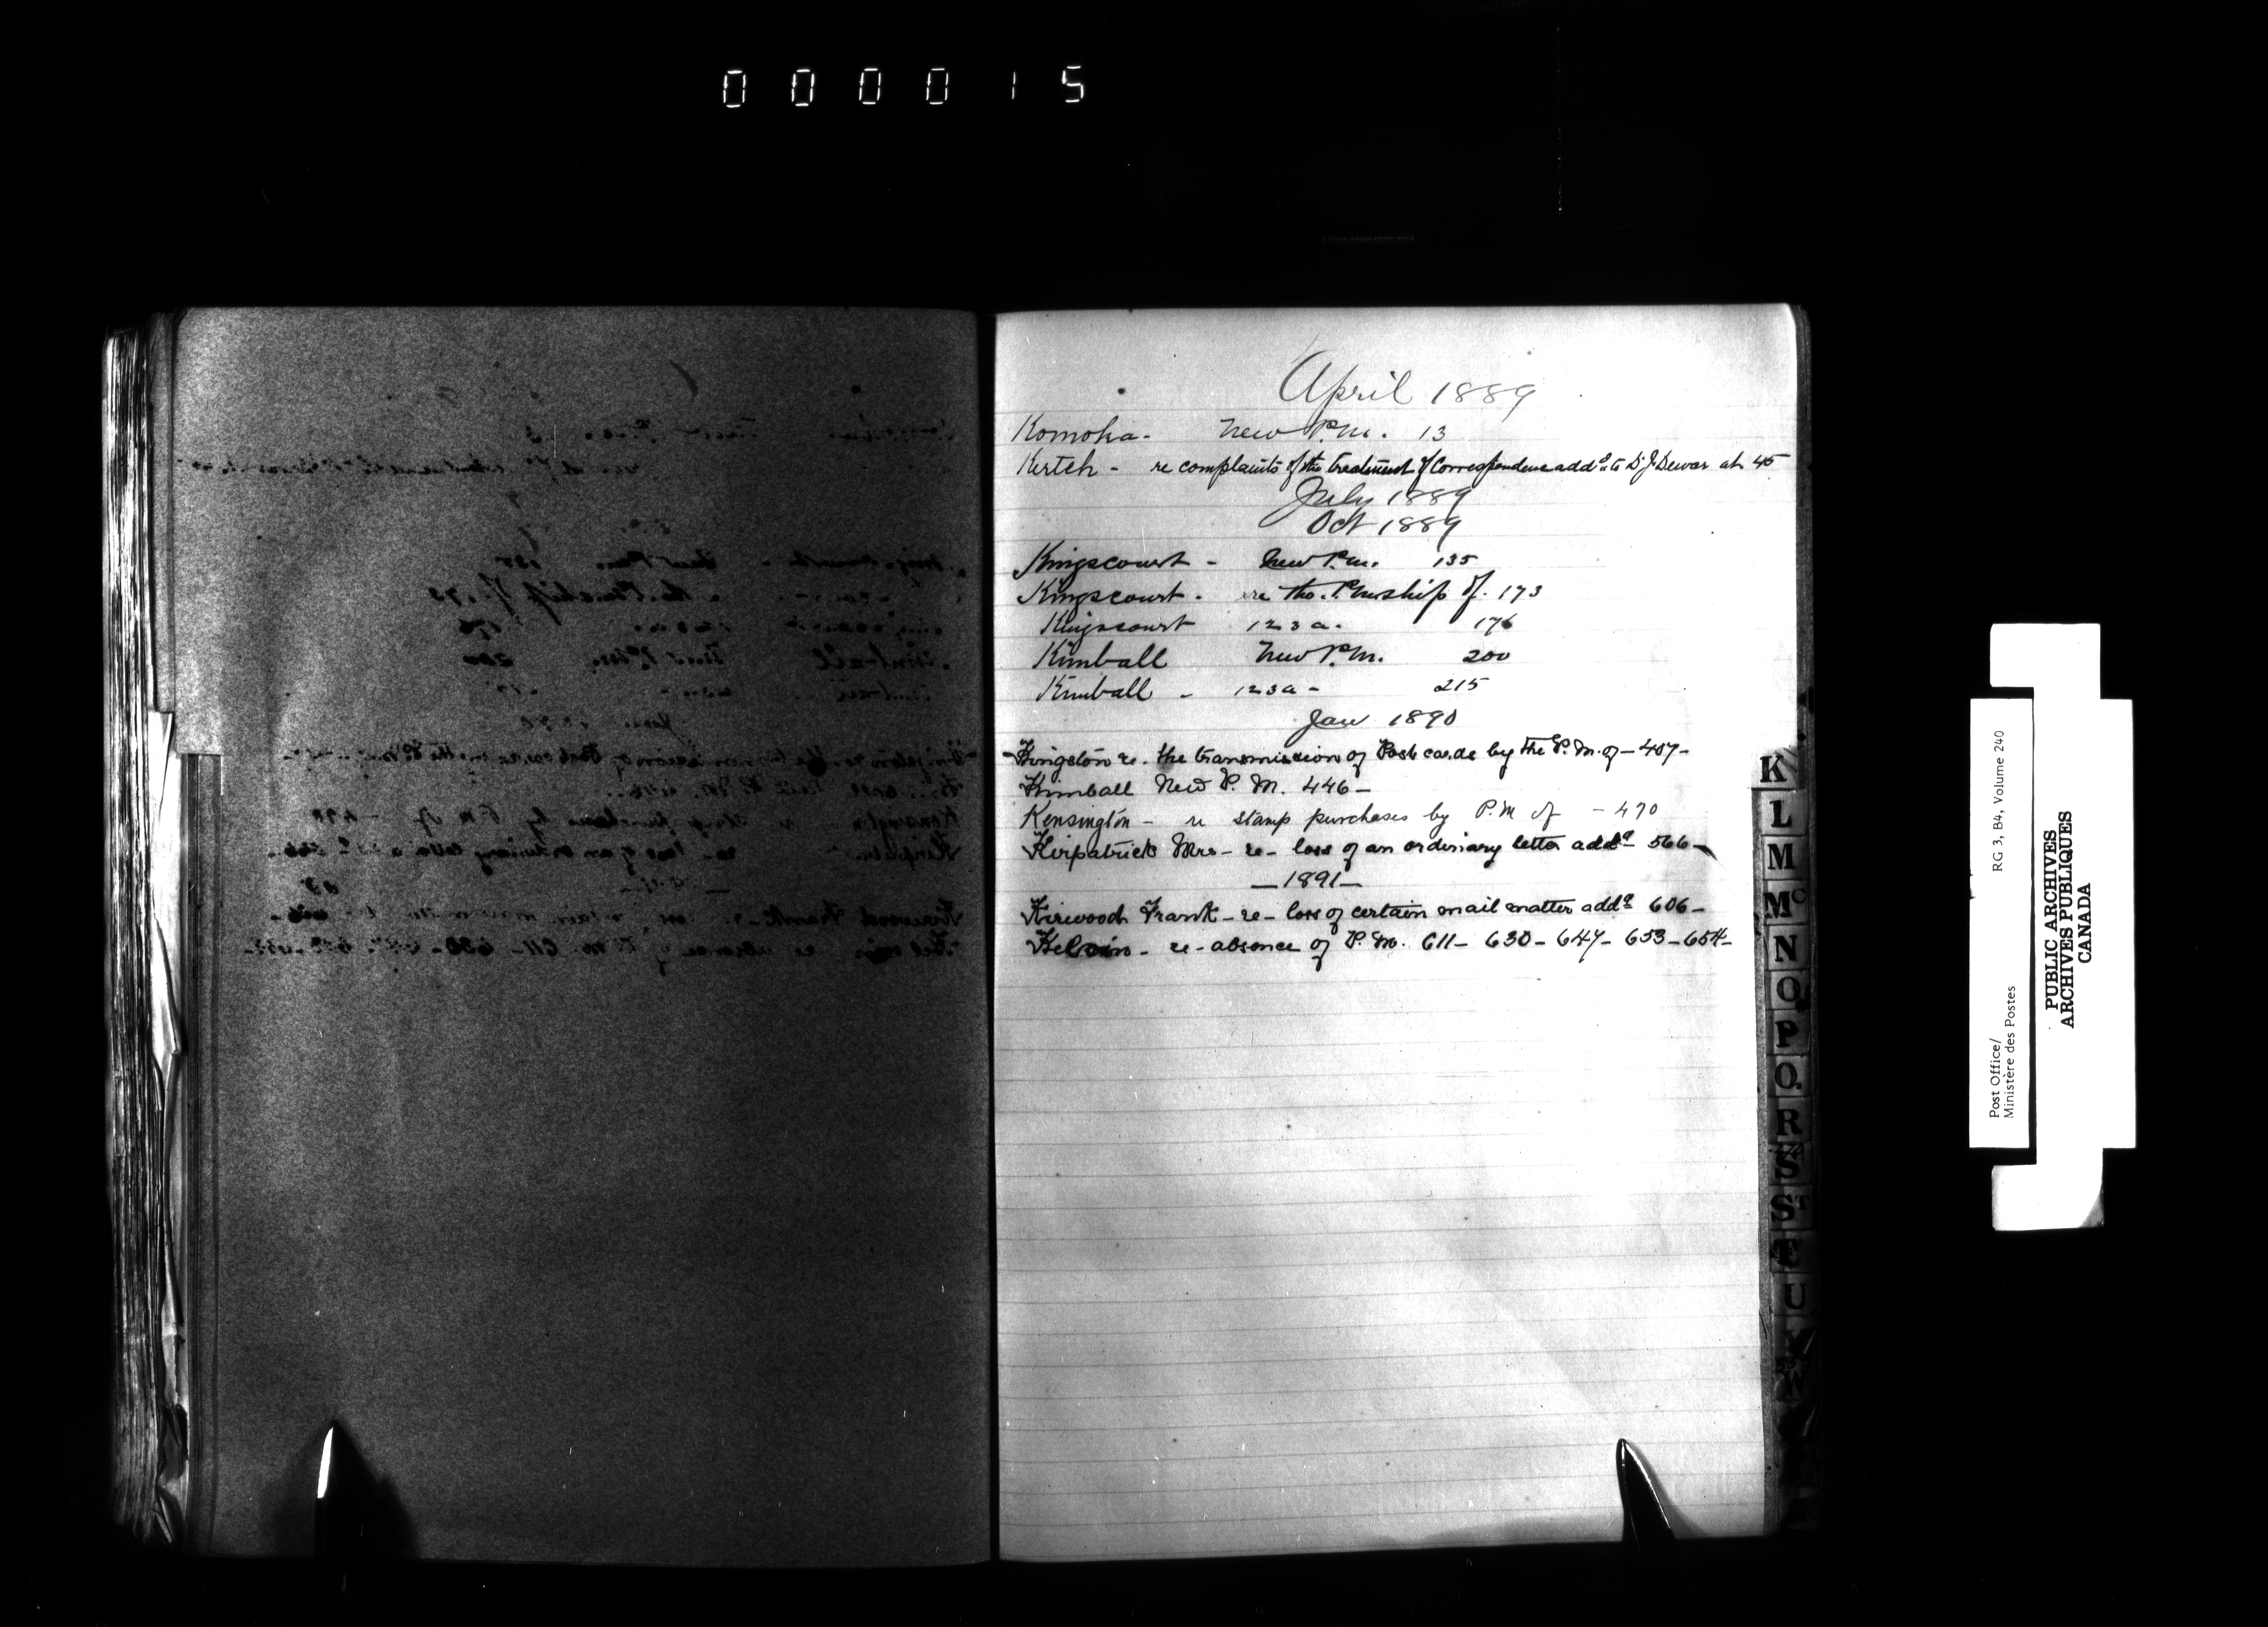 000015
April 1889
Komoka - New P.M. 13
Kertch - re complaints of the treatment of Correspondence addd to D. J. Dewar at 45
July 1889
Oct 1889
Kingscourt - New P.M. 135
Kingscourt - re the P.Mship of. 173
Kingscourt 123a. 176
Kimball New P.M. 200
Kimball - 123a - 215
Jan 1890
Kingston re. the transmission of Post cards by the P.M. of - 407 -
Kimball New P.M. 446 -
Kensington - re stamp purchases by P.M of - 470
Kirpatrick Mrs - re - loss of an ordinary letter addd 566 -
- 1891 -
Kirwood Frank - re - loss of certain mail matter addd 606 -
Kelvin - re - absence of P.M. 611 - 630 - 647 - 653 - 654 -
K
L
M
Mc
N
O
P
Q
R
S
ST
T
U
W
Post Office/
Ministère des Postes
RG 3, B4, Volume 240
PUBLIC ARCHIVES
ARCHIVES PUBLIQUES
CANADA